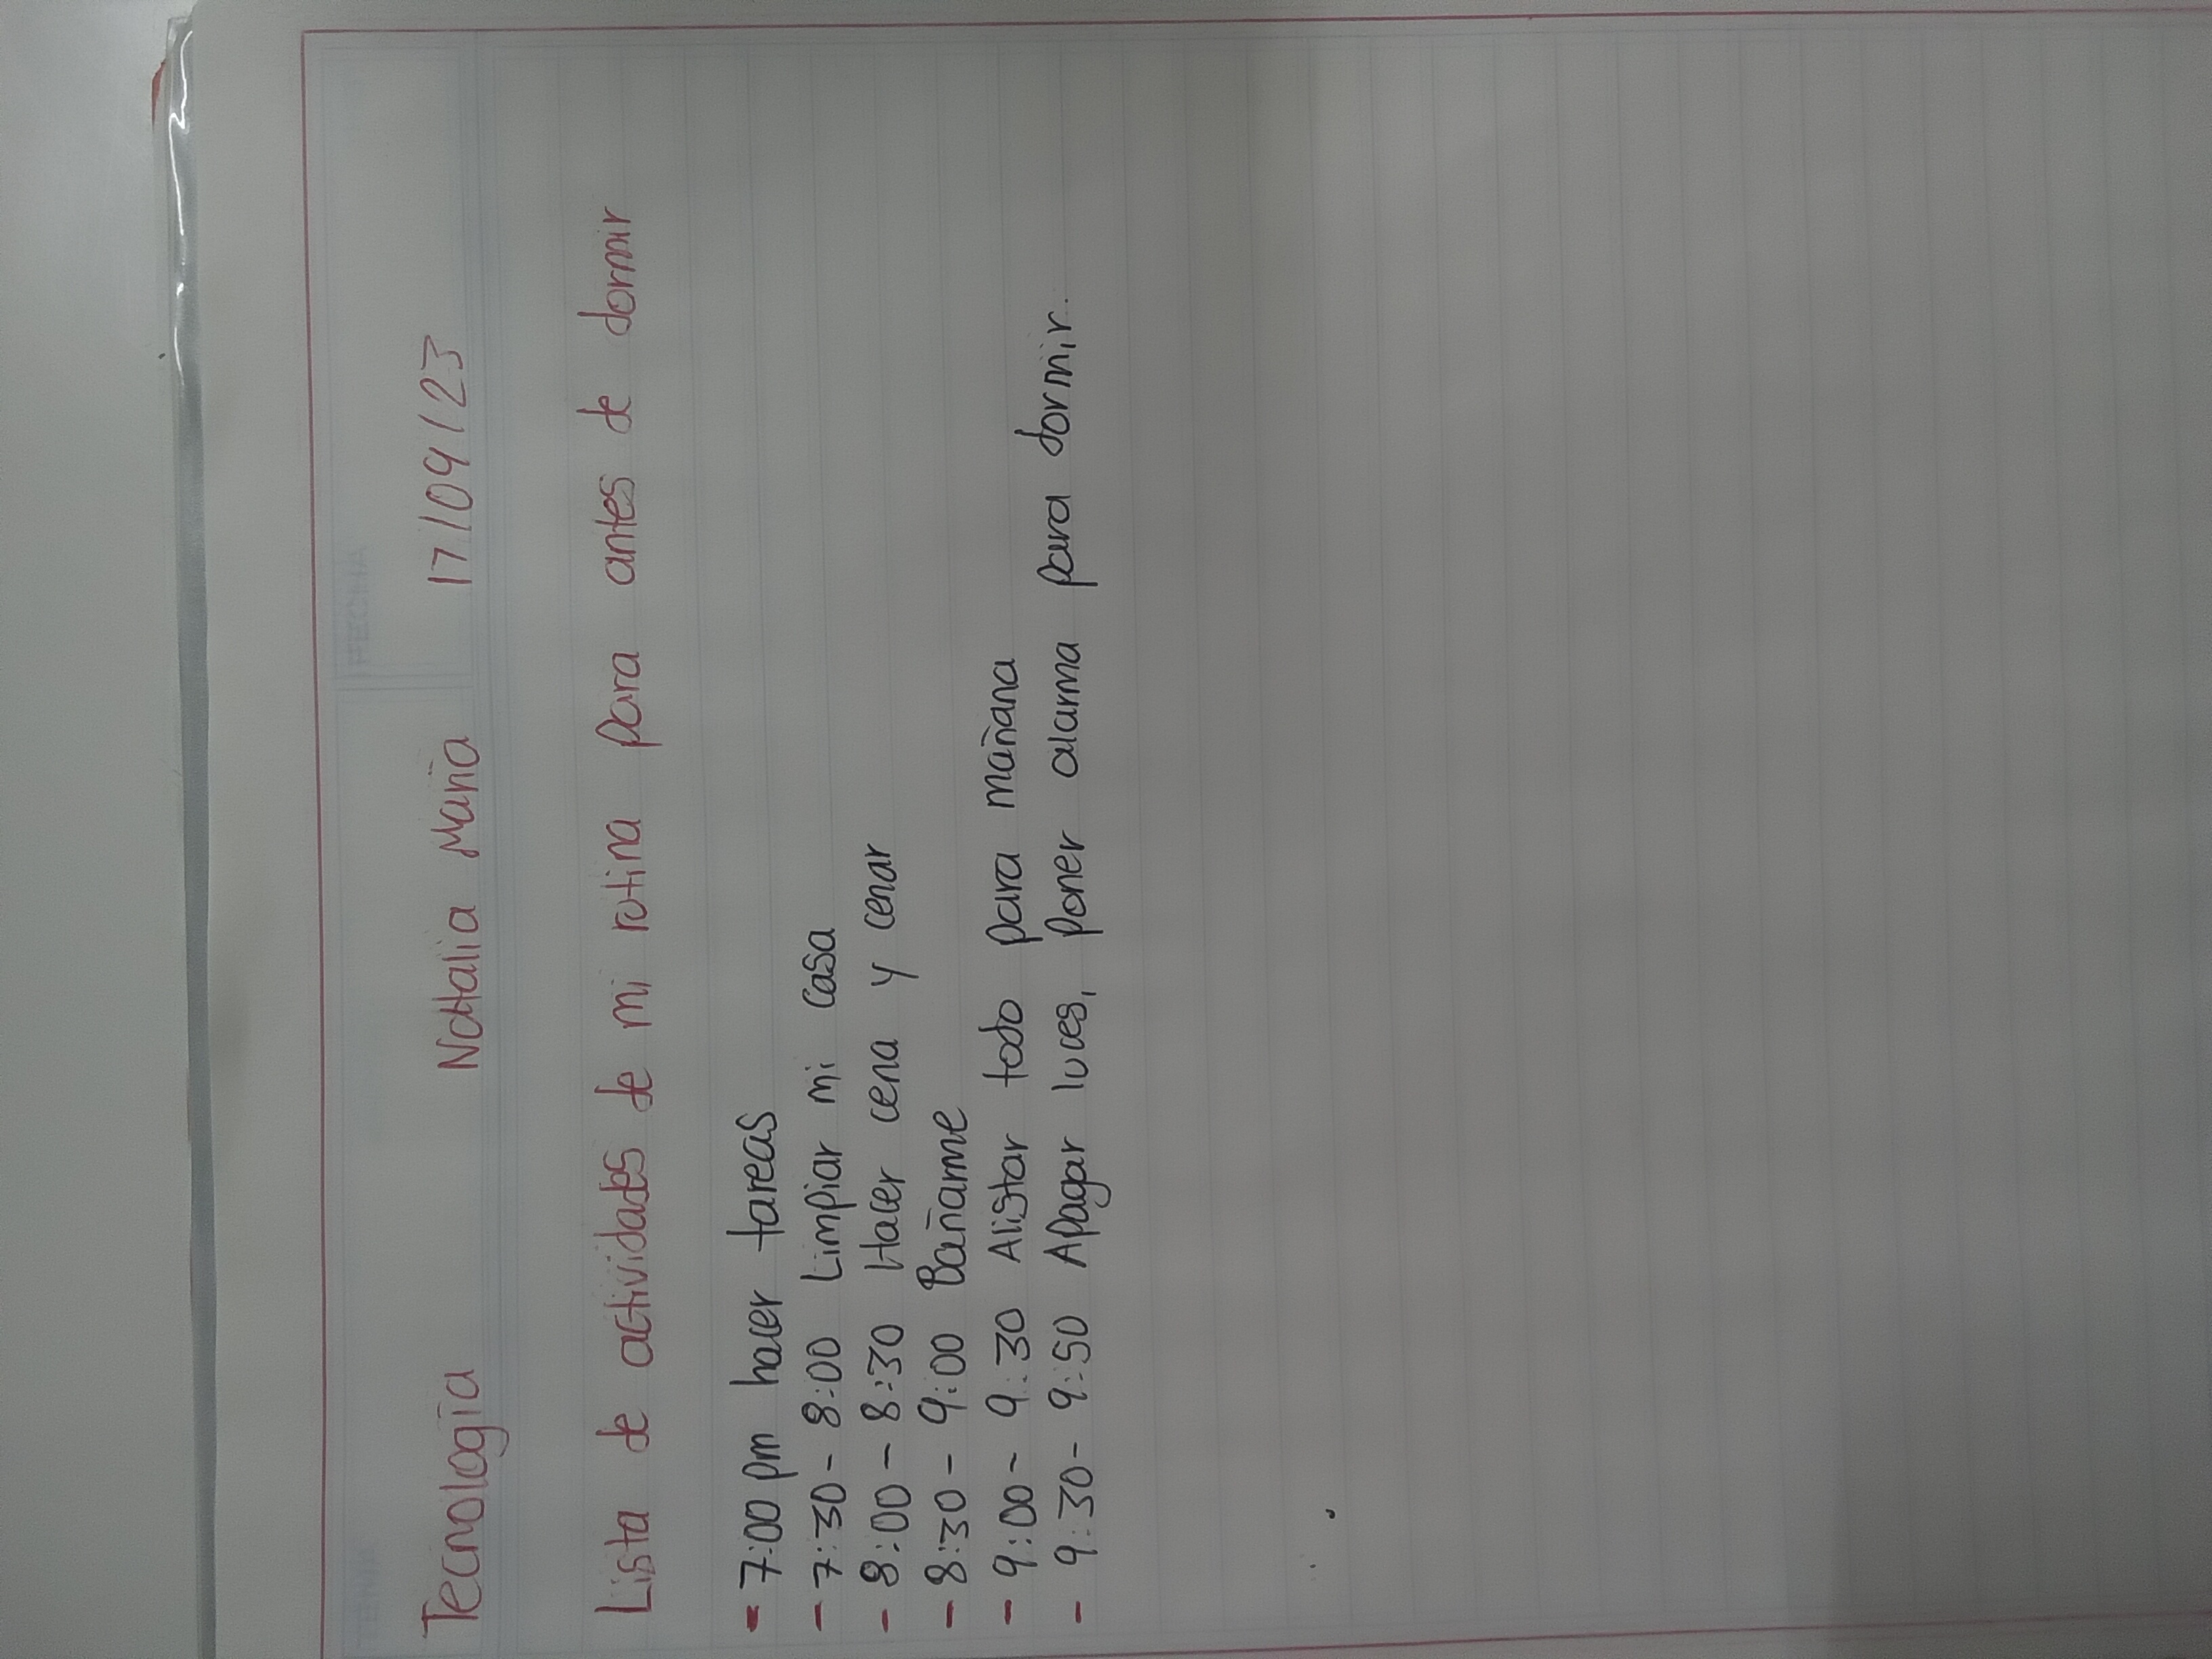 TEMA FECHA
Tecnología Natalia María 17/09/23
Lista de actividades de mi rutina para antes de dormir
- 7:00 pm hacer tareas
- 7:30 - 8:00 Limpiar mi casa
- 8:00 - 8:30 Hacer cena y cenar
- 8:30 - 9:00 Bañarme
- 9:00 - 9:30 Alistar todo para mañana
- 9:30 - 9:50 Apagar luces, poner alarma para dormir.